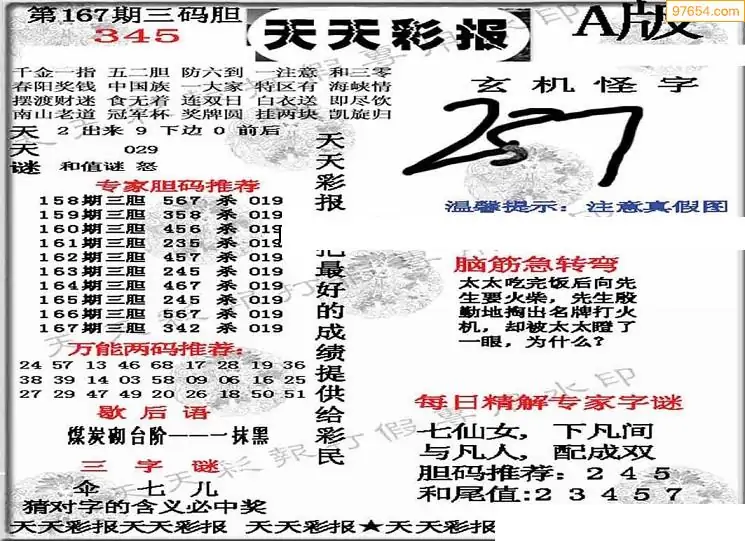 第167期三码胆
345
天天彩报
A版
97654.com
千金一指 五二胆 防六到 一注意 和三零
春阳奖钱 中国族 一大家 特区有 海峡情
摆渡财迷 食无着 连双日 白衣送 即尽饮
南山老道 冠军杯 奖牌圆 挂两块 凯旋归
天 2 出来 9 下边 0 前后
天 029
谜 和值谜 怒
专家胆码推荐
158期三胆 567 杀 019
159期三胆 358 杀 019
160期三胆 456 杀 019
161期三胆 235 杀 019
162期三胆 457 杀 019
163期三胆 245 杀 019
164期三胆 467 杀 019
165期三胆 245 杀 019
166期三胆 567 杀 019
167期三胆 342 杀 019
万能两码推荐:
24 57 13 46 68 17 28 19 36
38 39 14 03 58 09 06 16 25
27 29 47 49 20 26 18 50 51
歇后语
煤炭砌台阶———一抹黑
三字谜
伞 七 儿
猜对字的含义必中奖
天天彩报
把最好的成绩提供给彩民
玄机怪字
257
温馨提示: 注意真假图
脑筋急转弯
太太吃完饭后向先
生要火柴,先生殷
勤地掏出名牌打火
机,却被太太瞪了
一眼,为什么?
每日精解专家字谜
七仙女,下凡间
与凡人,配成双
胆码推荐:245
和尾值:23457
天天彩报天天彩报 天天彩报★天天彩报